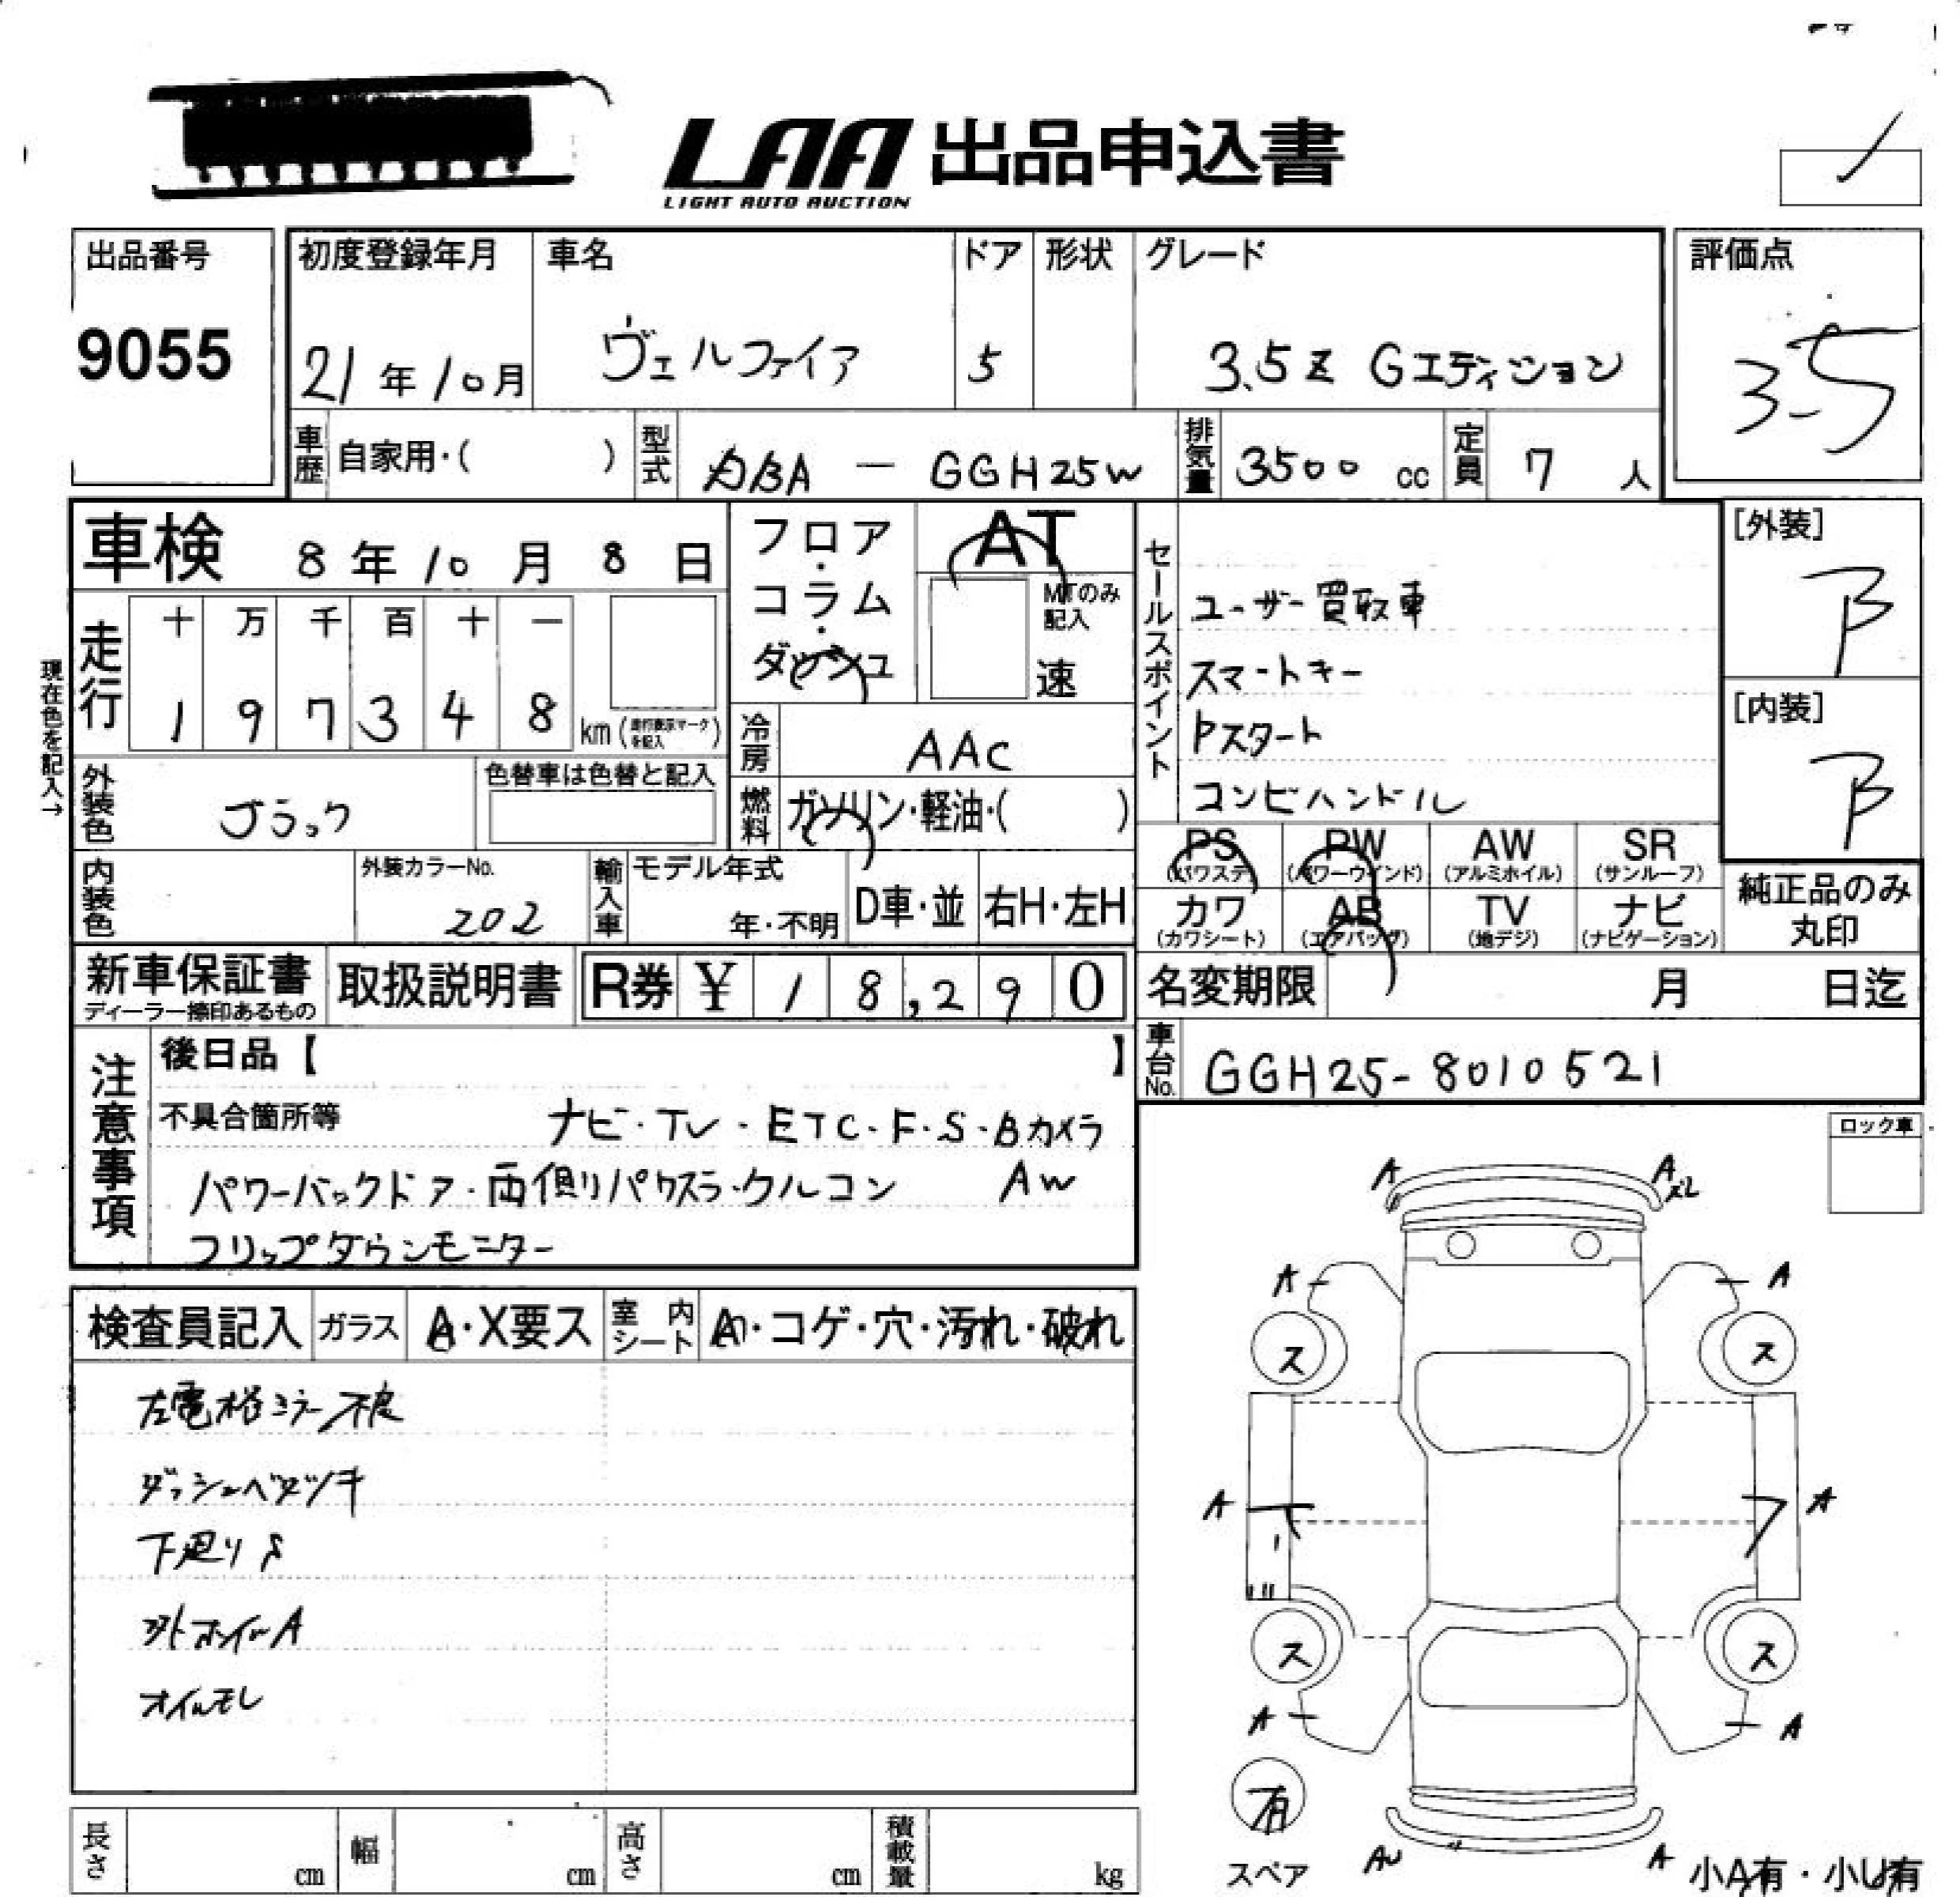 LAA 出品申込書
LIGHT AUTO AUCTION
出品番号
9055
初度登録年月
21年10月
車名
ヴェルファイア
ドア
5
形状
グレード
3.5Z Gエディション
評価点
3.5
車歴 自家用・( )
型式 DBA - GGH25W
排気量 3500 cc
定員 7 人
車検 8年10月8日
現在色を記入→
走行
十 万 千 百 十 一
1 9 7 3 4 8 km
フロア・コラム・ダッシュ
AT
MTのみ記入
速
冷房 AAC
燃料 ガソリン・軽油・( )
外装色 ブラック
色替車は色替と記入
内装色
外装カラーNo. 202
輸入車 モデル年式
年・不明
D車・並
右H・左H
セールスポイント
ユーザー買取車
スマートキー
Pスタート
コンビハンドル
[外装]
B
[内装]
B
PS (パワステ)
PW (パワーウインド)
AW (アルミホイル)
SR (サンルーフ)
カワ (カワシート)
AB (エアバッグ)
TV (地デジ)
ナビ (ナビゲーション)
純正品のみ
丸印
新車保証書
取扱説明書
R券 ¥ 18,290
名変期限 月 日迄
車台No. GGH25-8010521
注意事項
後日品【 】
不具合箇所等 ナビ・TV・ETC・F・S・Bカメラ
パワーバックドア・両側パワスラ・クルコン AW
フリップダウンモニター
ロック車
検査員記入
ガラス A・X要ス
室内シート A・コゲ・穴・汚れ・破れ
左電格ミラー不良
ダッシュベタツキ
下廻りS
外ホイルA
オイルモレ
A
A
ズレ
A
A
ス
ス
A
A
ス
ス
A
A
有
スペア
AU
A
小A有・小U有
長さ cm
幅 cm
高さ cm
積載量 kg